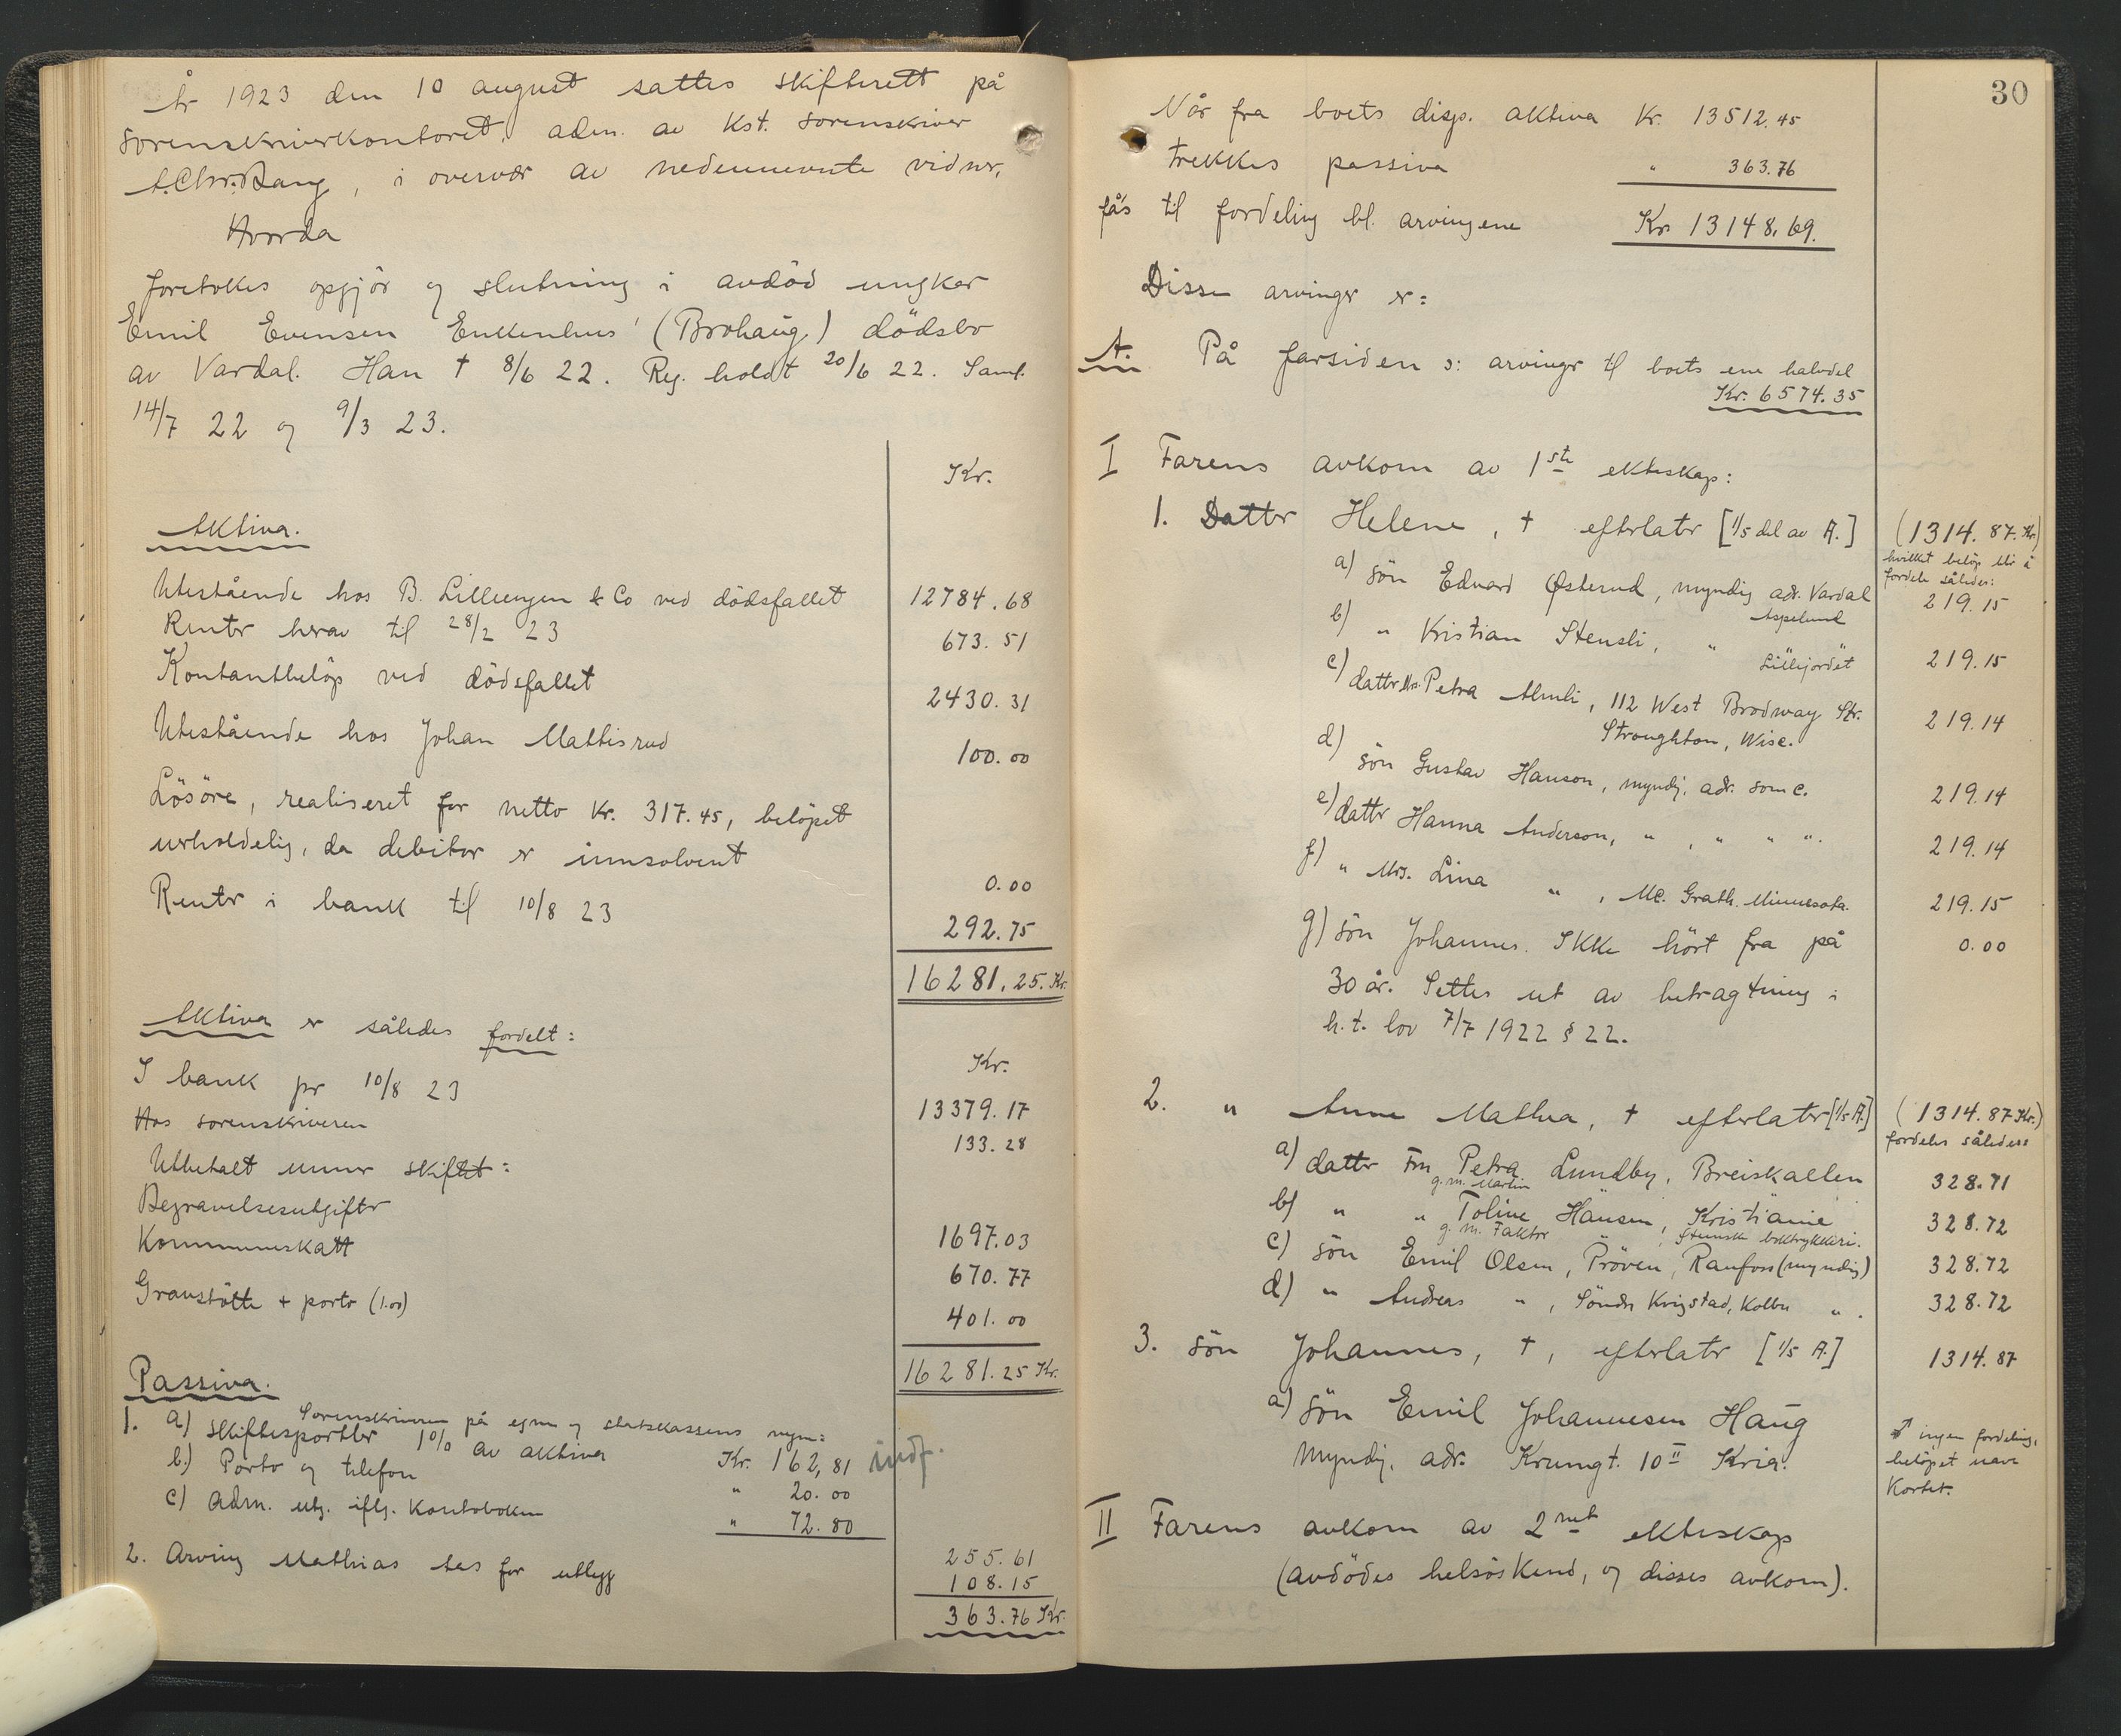 År 1923 den 10 august sattes skifterett på
sorenskriverkontoret, adm. av Kst. sorenskriver
A. Chr. Bang, i overvær av nedennevnte vidner,
Hvorda
foretokes opgjör og slutning i avdöd ungkar
Emil Evensen Enkenhus' (Brohaug) dödsbo
av Vardal. Han † 8/6 22. Reg. holdt 20/6 22. Saml.
14/7 22 og 9/3 23.
Kr.
Aktiva.
Utestående hos B. Lillengen & Co ved dödsfallet 12784.68
Renter herav til 28/2 23 673.51
Kontantbelöp ved dödsfallet 2430.31
Utestående hos Johan Mattisrud 100.00
Lösöre, realiseret for netto Kr. 317.45, belöpet
uerholdelig, da debitor er innsolvent 0.00
Renter i bank til 10/8 23 292.75
16281.25. Kr.
Aktiva er således fordelt:
Kr.
I bank pr 10/8 23 13379.17
Hos sorenskriveren 133.28
Utbetalt unner skiftet:
Begravelsesutgifter 1697.03
Kommuneskatt 670.77
Gravstötte + porto (1.00) 401.00
16281.25 Kr.
Passiva.
1. Sorenskriveren på egne og statskassens vegne:
a) skiftesportler 1% av aktiva Kr. 162,81
b) Porto og telefon " 20.00
c) Adm. utg. iflg. Kontoboken " 72.80
255.61
2. Arving Mathias tas for utlegg 108.15
363.76 Kr.
30
Når fra boets disp. aktiva Kr. 13512.45
trekkes passiva " 363.76
fås til fordeling bl. arvingene Kr 13148.69.
Disse arvinger er:
A. På farsiden ɔ: arvinger til boets ene halvdel
Kr. 6574.35
I Farens avkom av 1ste ekteskap:
1. Datter Helene, † efterlater [1/5 del av A.] (1314.87. Kr.)
hvilket belöp blir å
fordele således:
a) sön Edvard Østerud, myndig adr. Vardal 219.15
Aspelund
b) " Kristian Stensli, " Lillejordet 219.15
c) datter Mrs. Petra Almli, 112 West Brodway Str. 219.14
Stroughton, Wisc.
d) sön Gustav Hanson, myndig. adr. som c. 219.14
e) datter Hanna Anderson, " , " " ". 219.14
f) " Mrs. Lina " , Mc. Grath. Minnesota. 219.15
g) sön Johannes. Ikke hört fra på 0.00
30 år. Settes ut av betragtning i
h.t. lov 7/7 1922 § 22.
2. " Anne Mathea, † efterlater [1/5 A.] (1314.87 Kr.)
fordeles således:
a) datter Fru Petra Lundby, Breiskallen 328.71
g.m. Martin
b) " " Toline Hansen, Kristiania 328.72
g.m. Faktor " , Stenske boktrykkeri.
c) sön Emil Olsen, Pröven, Raufoss (myndig) 328.72
d) " Andreas " , Söndre Krigstad, Kolbu " . 328.72
3. sön Johannes, †, efterlater [1/5 A.] 1314.87
a) sön Emil Johannesen Haug
myndig. adr. Krumgt. 10 II Kria.
ingen fordeling,
belöpet uavkortet.
II Farens avkom av 2net ekteskap
(avdödes helsöskend, og disses avkom).